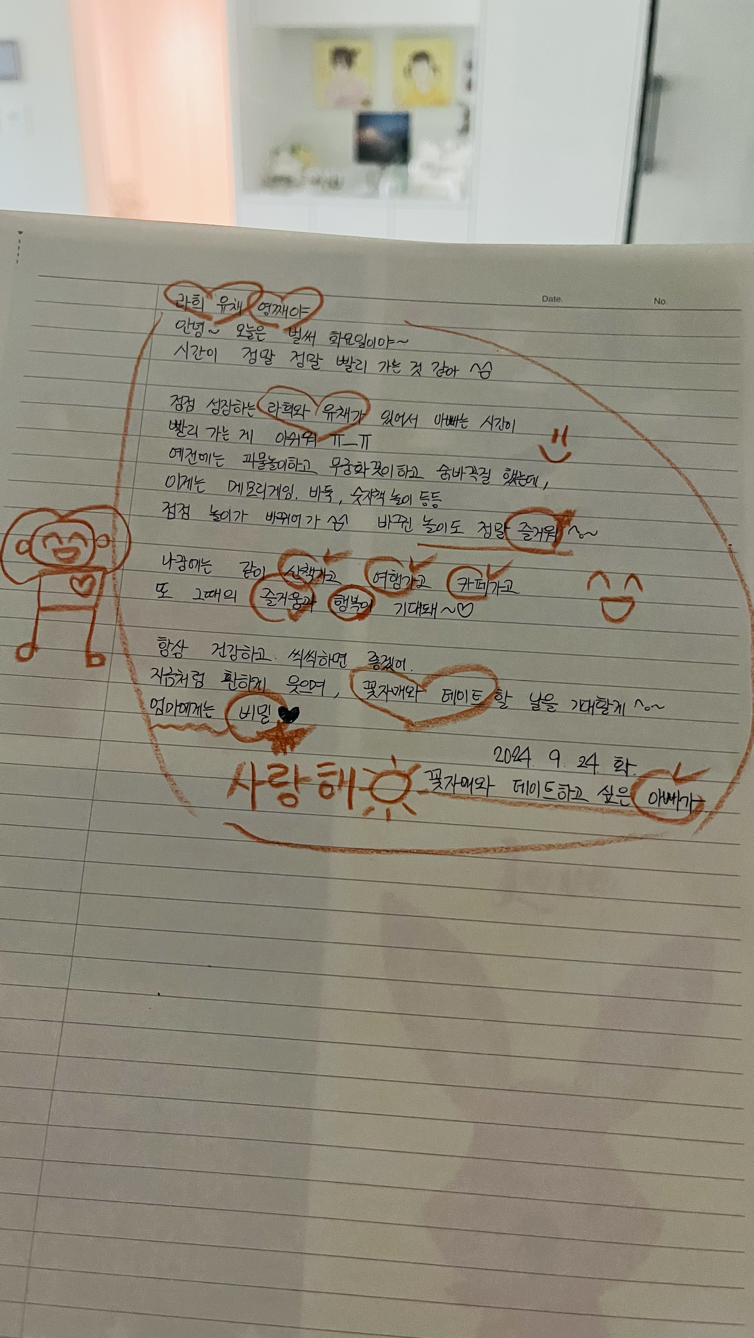 Date. No.
라희 유채 영째야
안녕~ 오늘은 벌써 화요일이야~
시간이 정말 정말 빨리 가는 것 같아 ^^
점점 성장하는 라희와 유채가 있어서 아빠는 시간이
빨리 가는 게 아쉬워 ㅠ_ㅠ
예전에는 괴물놀이하고 무궁화꽃이하고 숨바꼭질 했는데,
이제는 메모리게임, 바둑, 숫자책 놀이 등등
점점 놀이가 바뀌어가 ^^ 바뀐 놀이도 정말 즐거워 ^~~
나중에는 같이 산책가고 여행가고 카페가고
또 그때의 즐거움과 행복이 기대돼~♡
항상 건강하고 씩씩하면 좋겠어.
지금처럼 환하게 웃으며, 꽃자매와 데이트 할 날을 기대할게 ^~^
엄마에게는 비밀 ♥
2024. 9. 24 화.
사랑해 꽃자매와 데이트하고 싶은 아빠가